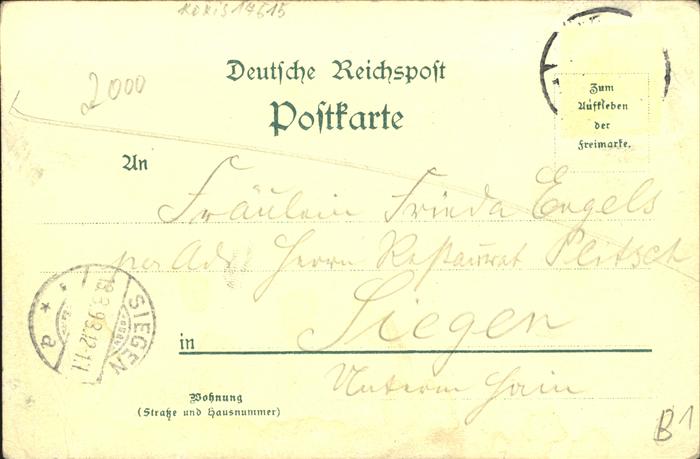 2000
Deutsche Reichspost
Postkarte
Zum
Aufkleben
der
Freimarke.
An
Fräulein Frieda Engels
per Adr. Herrn Restaurat Plitsch
in Siegen
Unterm Hain
Wohnung
(Straße und Hausnummer)
SIEGEN
a
B1